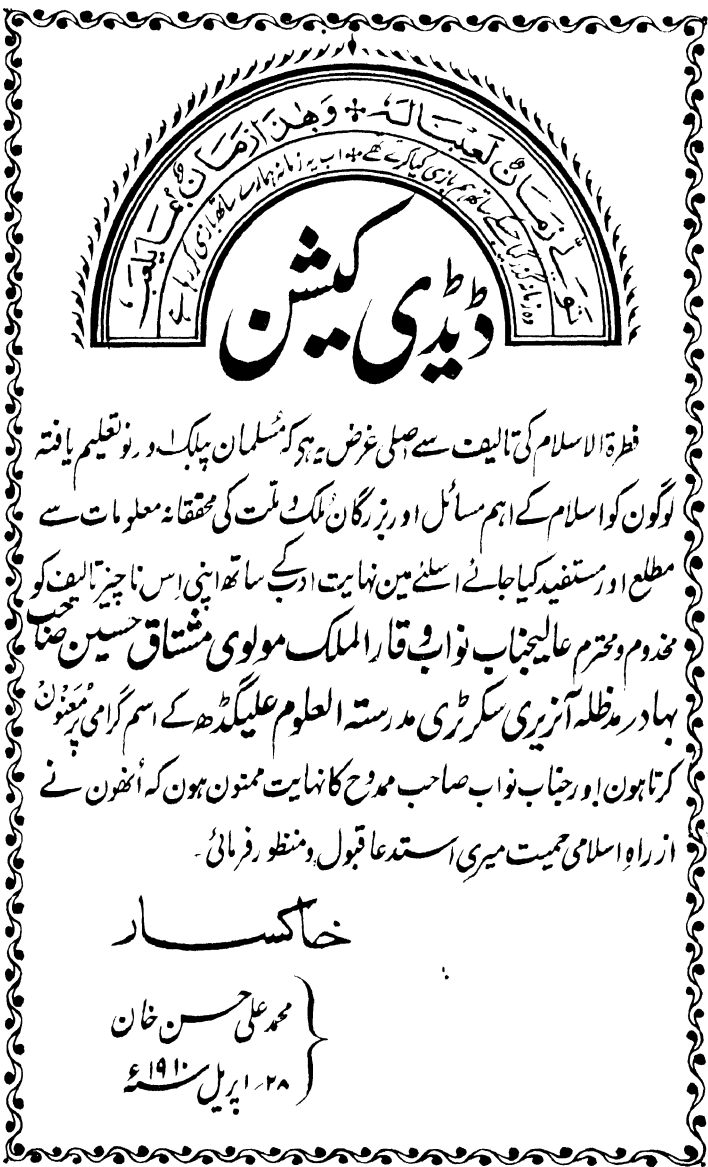 تولے زمان لعبنا لہ ✣ وھذا زمان بنا یلعب
وہ زمانہ گزر گیا جسکے ساتھ ہم بازی کیا کرتے تھے ✣ اب یہ زمانہ ہمارے ساتھ بازی کر رہا ہے
ڈیڈی کیشن
فطرۃ الاسلام کی تالیف سے اصلی غرض یہ ہر کہ مسلمان پبلک اور نو تعلیم یافتہ
لوگون کو اسلام کے اہم مسائل اور بزرگان ملک و ملت کی محققانہ معلومات سے
مطلع اور مستفید کیا جائے اسلئے مین نہایت ادب کے ساتھ اپنی اِس ناچیز تالیف کو
مخدوم و محترم عالیجناب نواب وقار الملک مولوی مشتاق حسین صاحب
بہادر مدظلہ آنریری سکرٹری مدرستہ العلوم علیگڈھ کے اسم گرامی پر مُعَنْوَن
کرتا ہون اور جناب نواب صاحب ممدوح کا نہایت ممنون ہون کہ اُنھون نے
از راہِ اسلامی حمیت میری استدعا قبول و منظور فرمائی۔
خاکسار
محمد علی حسن خان
۲۸؍ اپریل ۱۹۱۰ء